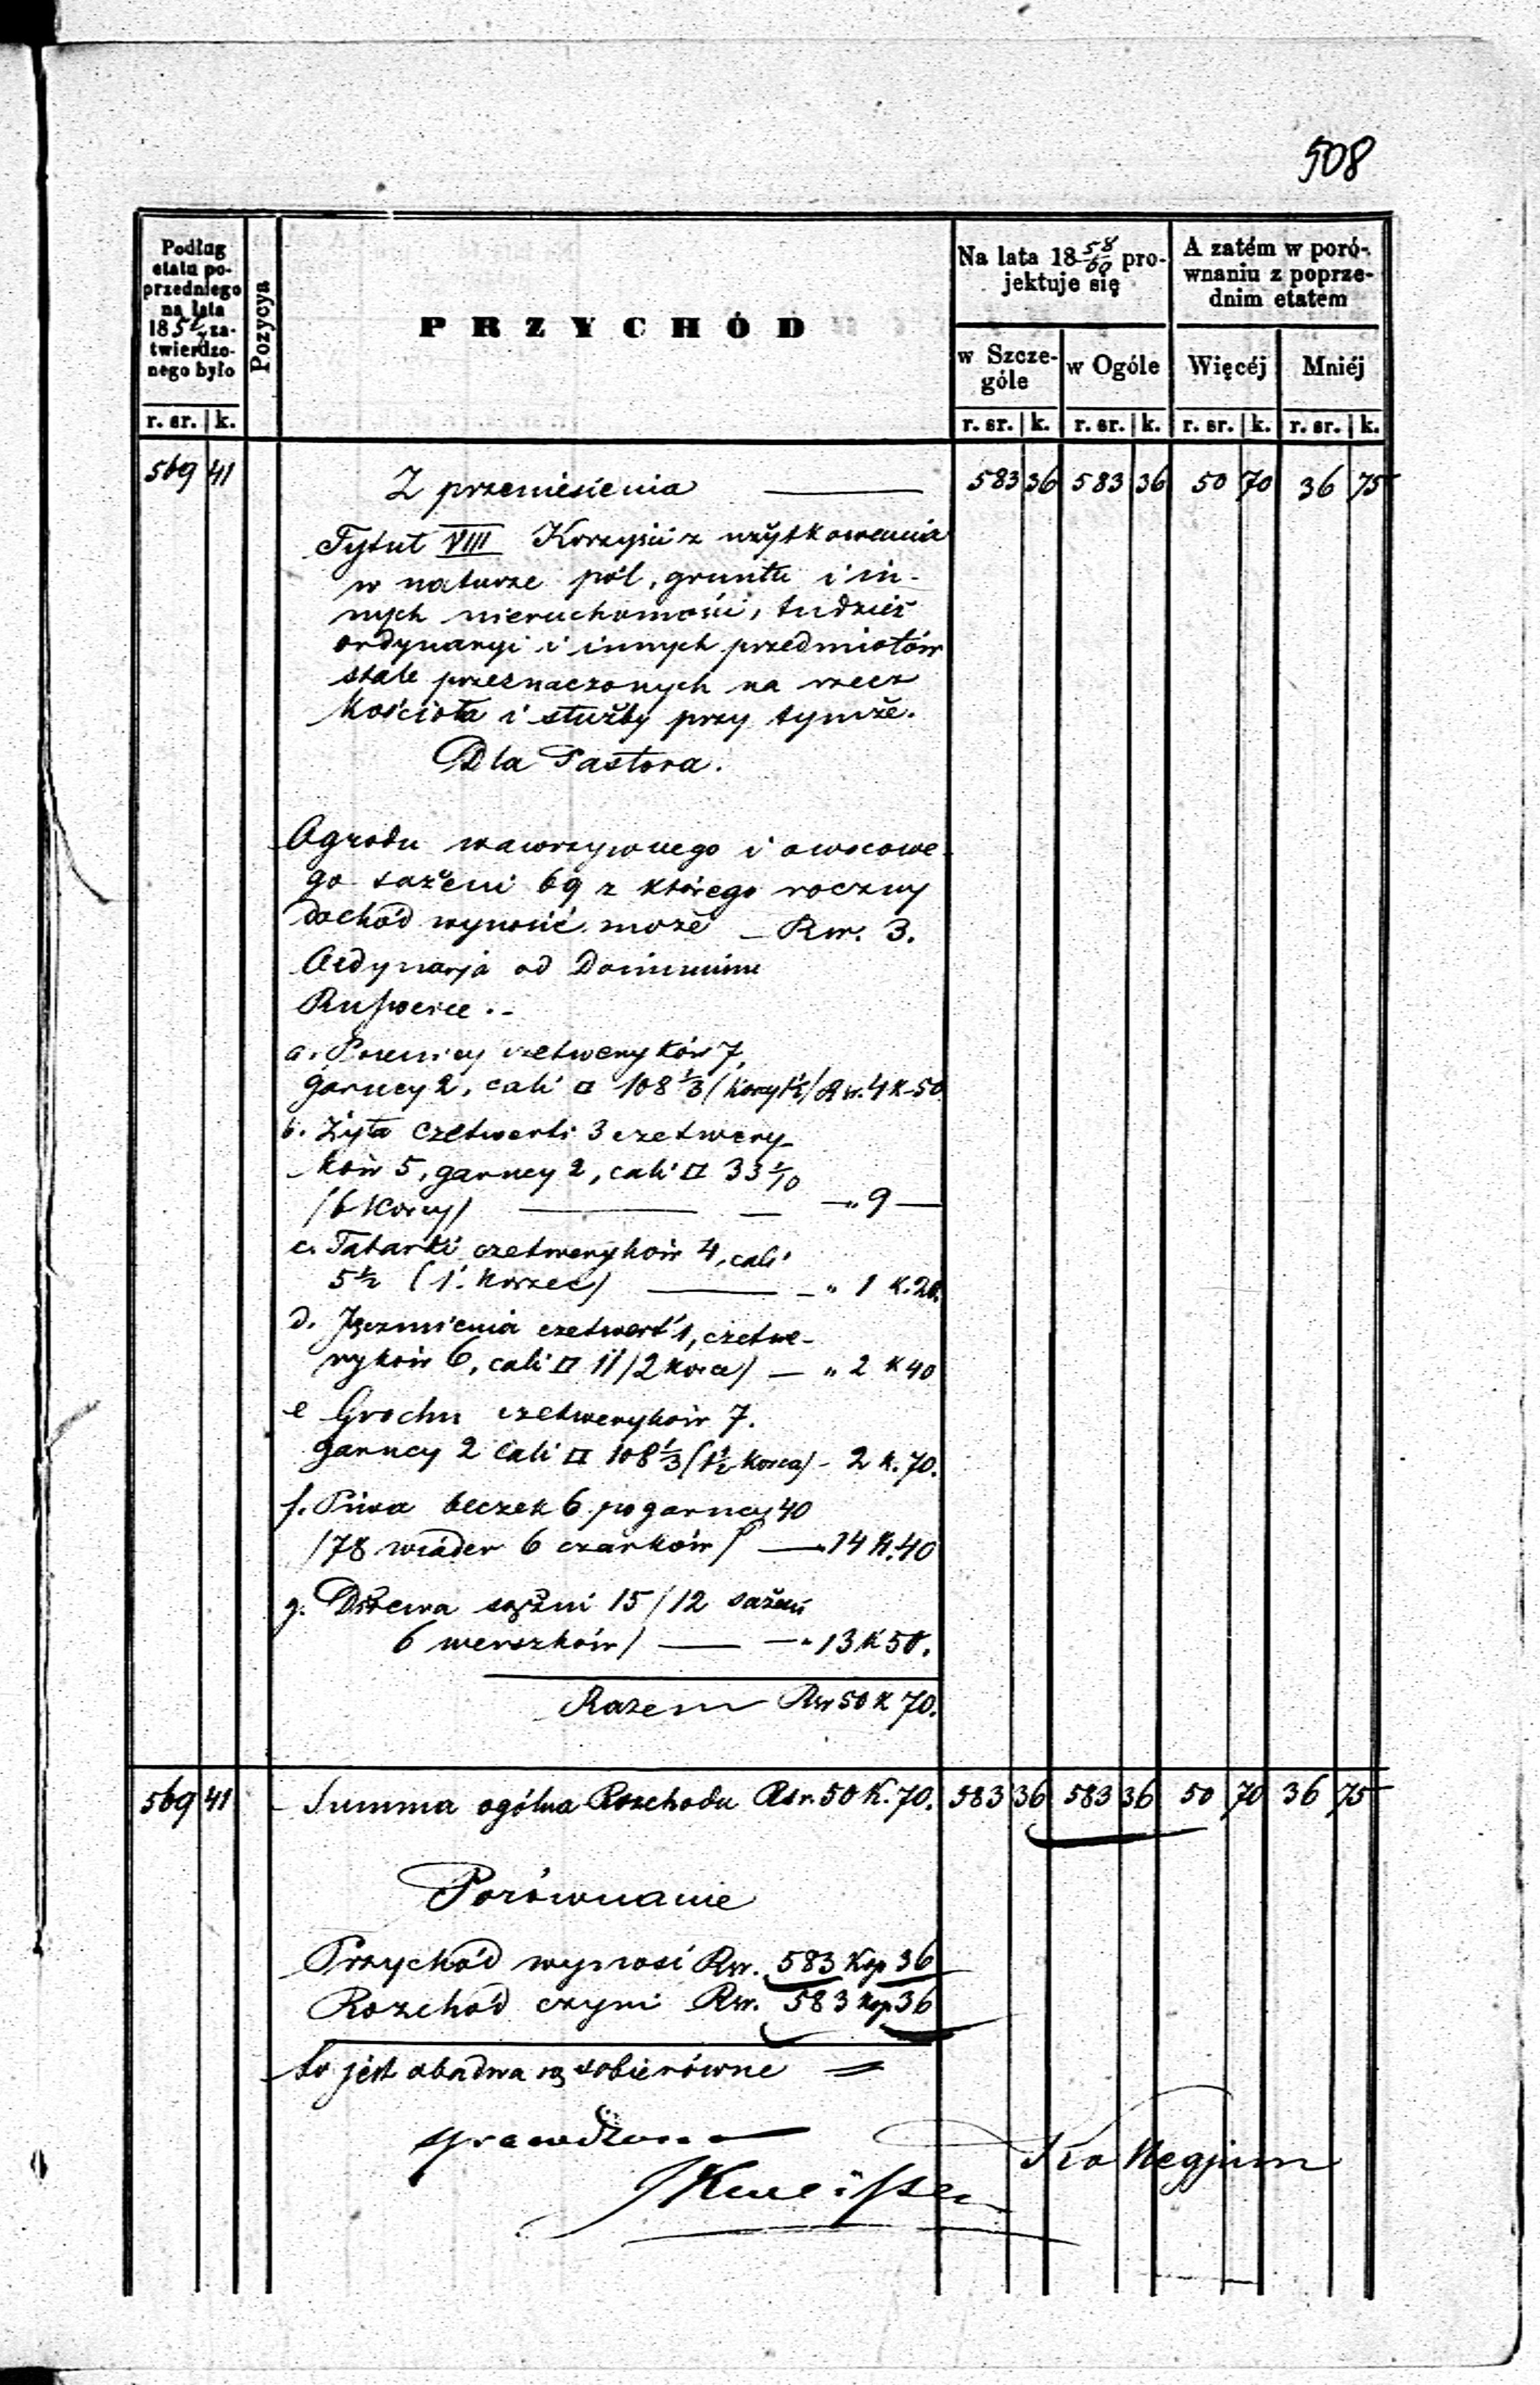 508
Podług
etatu po-
przedniego
na lata
185 za-
twierdzo-
nego było
Pozycya
PRZYCHÓD
Na lata 18 58/60 pro-
jektuje się
A zatém w poró-
wnaniu z poprze-
dnim etatem
w Szcze-
góle
w Ogóle
Więcéj
Mniéj
r. sr. k. r. sr. k. r. sr. k. r. sr. k. r. sr. k.
569 41 Z przeniesienia — 583 36 583 36 50 70 36 75
Tytuł VIII Korzyści z użytkowania
w naturze pól, gruntu i in-
nych nieruchomości, tudzież
ordynaryi i innych przedmiotów
stale przeznaczonych na rzecz
Kościoła i służby przy tymże.
Dla Pastora.
Ogrodu warzywnego i owocowe-
go sażeni 69 z którego roczny
dochód wynosić może — Rsr. 3.
Ordynarja od Dominium
a. Pszenicy czetweryków 7,
garncy 2, cali □ 108 1/3 (korcy 1½) Rsr. 4 K. 50
b. Żyta czetwerti 3 czetwery-
ków 5, garncy 2, cali □ 33 1/10
(6 Korcy) — — „ 9 —
c. Tatarki czetweryków 4, cali
5½ (1. Korzec) — — „ 1 K. 20.
d. Jęczmienia czetwert' 1, czetwe-
ryków 6, cali □ 11 (2 Korca) — „ 2 K 40
e Grochu czetweryków 7.
garncy 2 cali □ 108 1/3 (1½ Korca) - 2 K. 70.
f. Piwa beczek 6 po garncy 40
(78 wiader 6 czarków) — „ 14 K. 40
g. Drzewa sążni 15 (12 sażeni
6 werszków) — — „ 13 K 50.
Razem Rsr 50 K 70.
569 41 Summa ogólna Rozchodu Rsr. 50 K. 70. 583 36 583 36 50 70 36 75
Porównanie
Przychód wynosi Rsr. 583 Kop 36
Rozchód czyni Rsr. 583 kop. 36
to jest obadwa są sobie równe =
Kollegjum